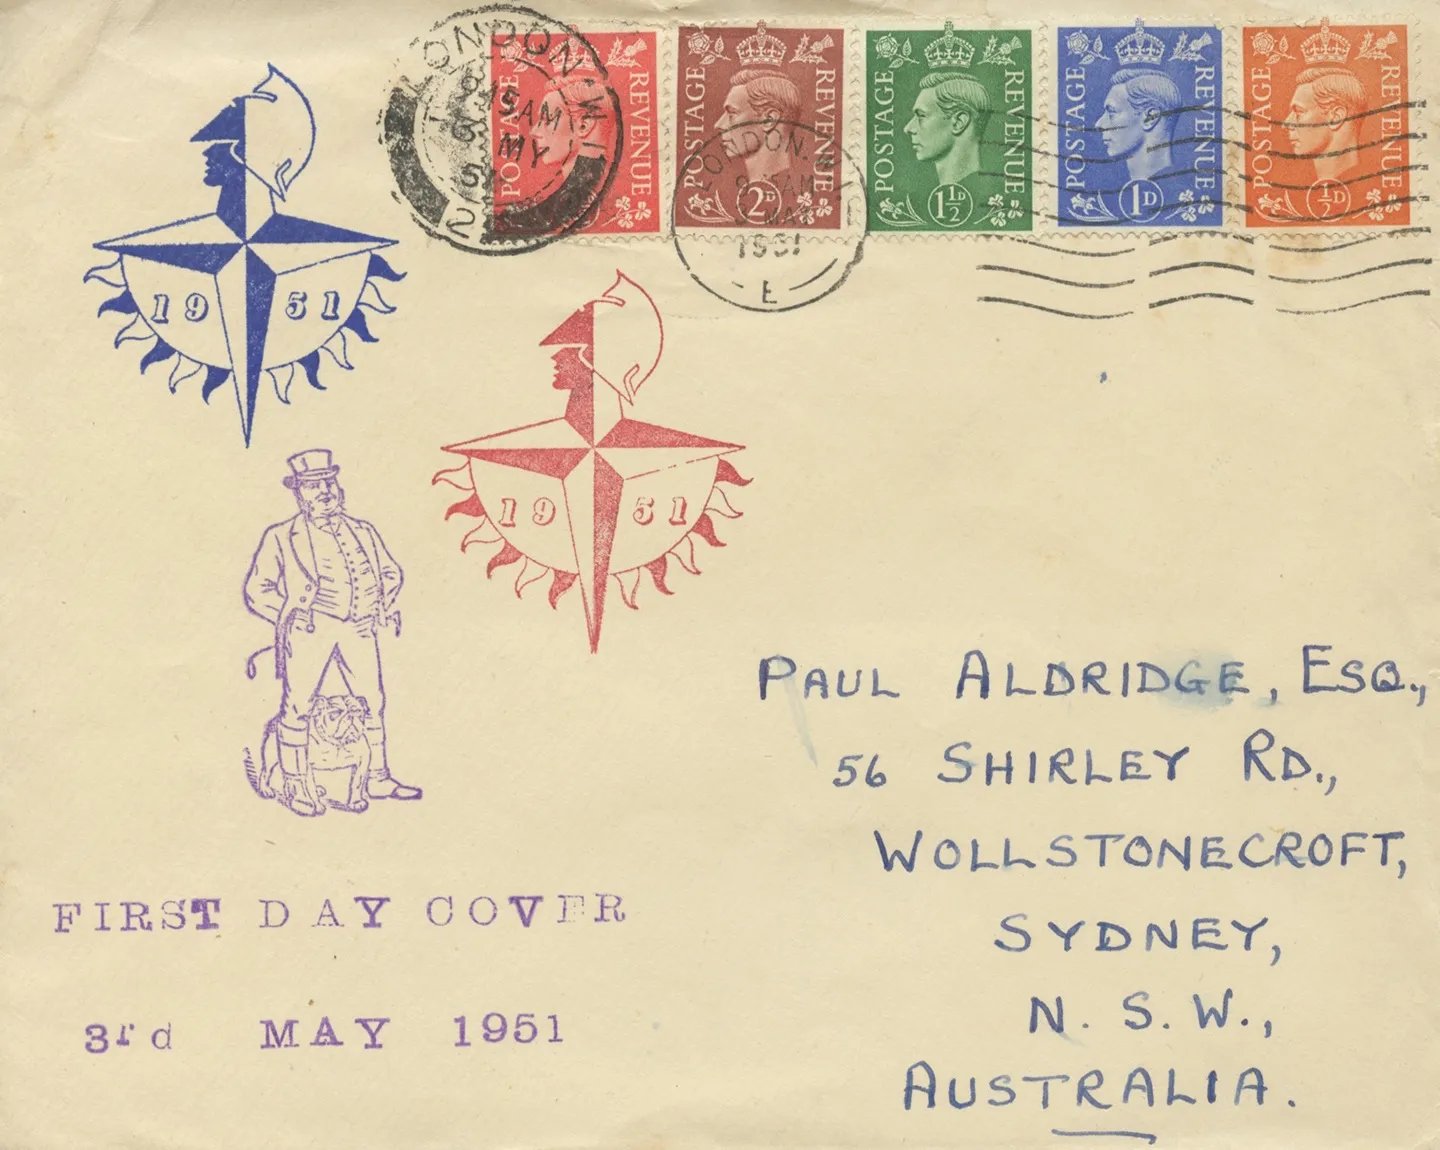 LONDON. W.1
8 15 AM
MY
51
2
POSTAGE REVENUE
POSTAGE REVENUE
2D
POSTAGE REVENUE
1½
POSTAGE REVENUE
1D
POSTAGE REVENUE
½D
LONDON. W.1
AM
MAY
1951
E
1951
1951
PAUL ALDRIDGE, ESQ.,
56 SHIRLEY RD.,
WOLLSTONECROFT,
SYDNEY,
N. S. W.,
AUSTRALIA.
FIRST DAY COVER
3rd MAY 1951